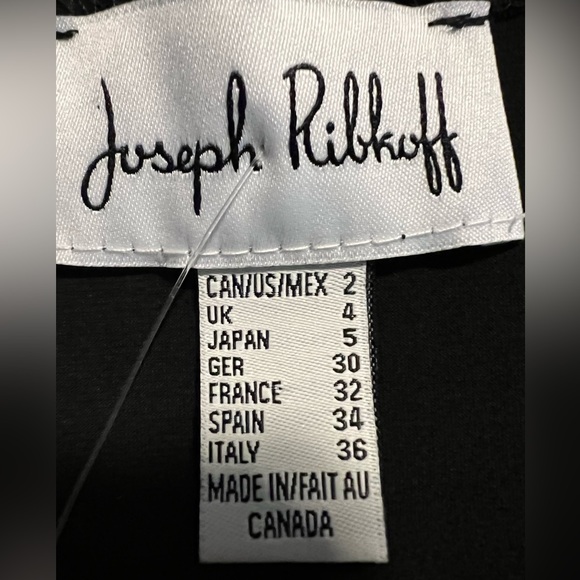 Joseph Ribkoff
CAN/US/MEX 2
UK 4
JAPAN 5
GER 30
FRANCE 32
SPAIN 34
ITALY 36
MADE IN/FAIT AU
CANADA